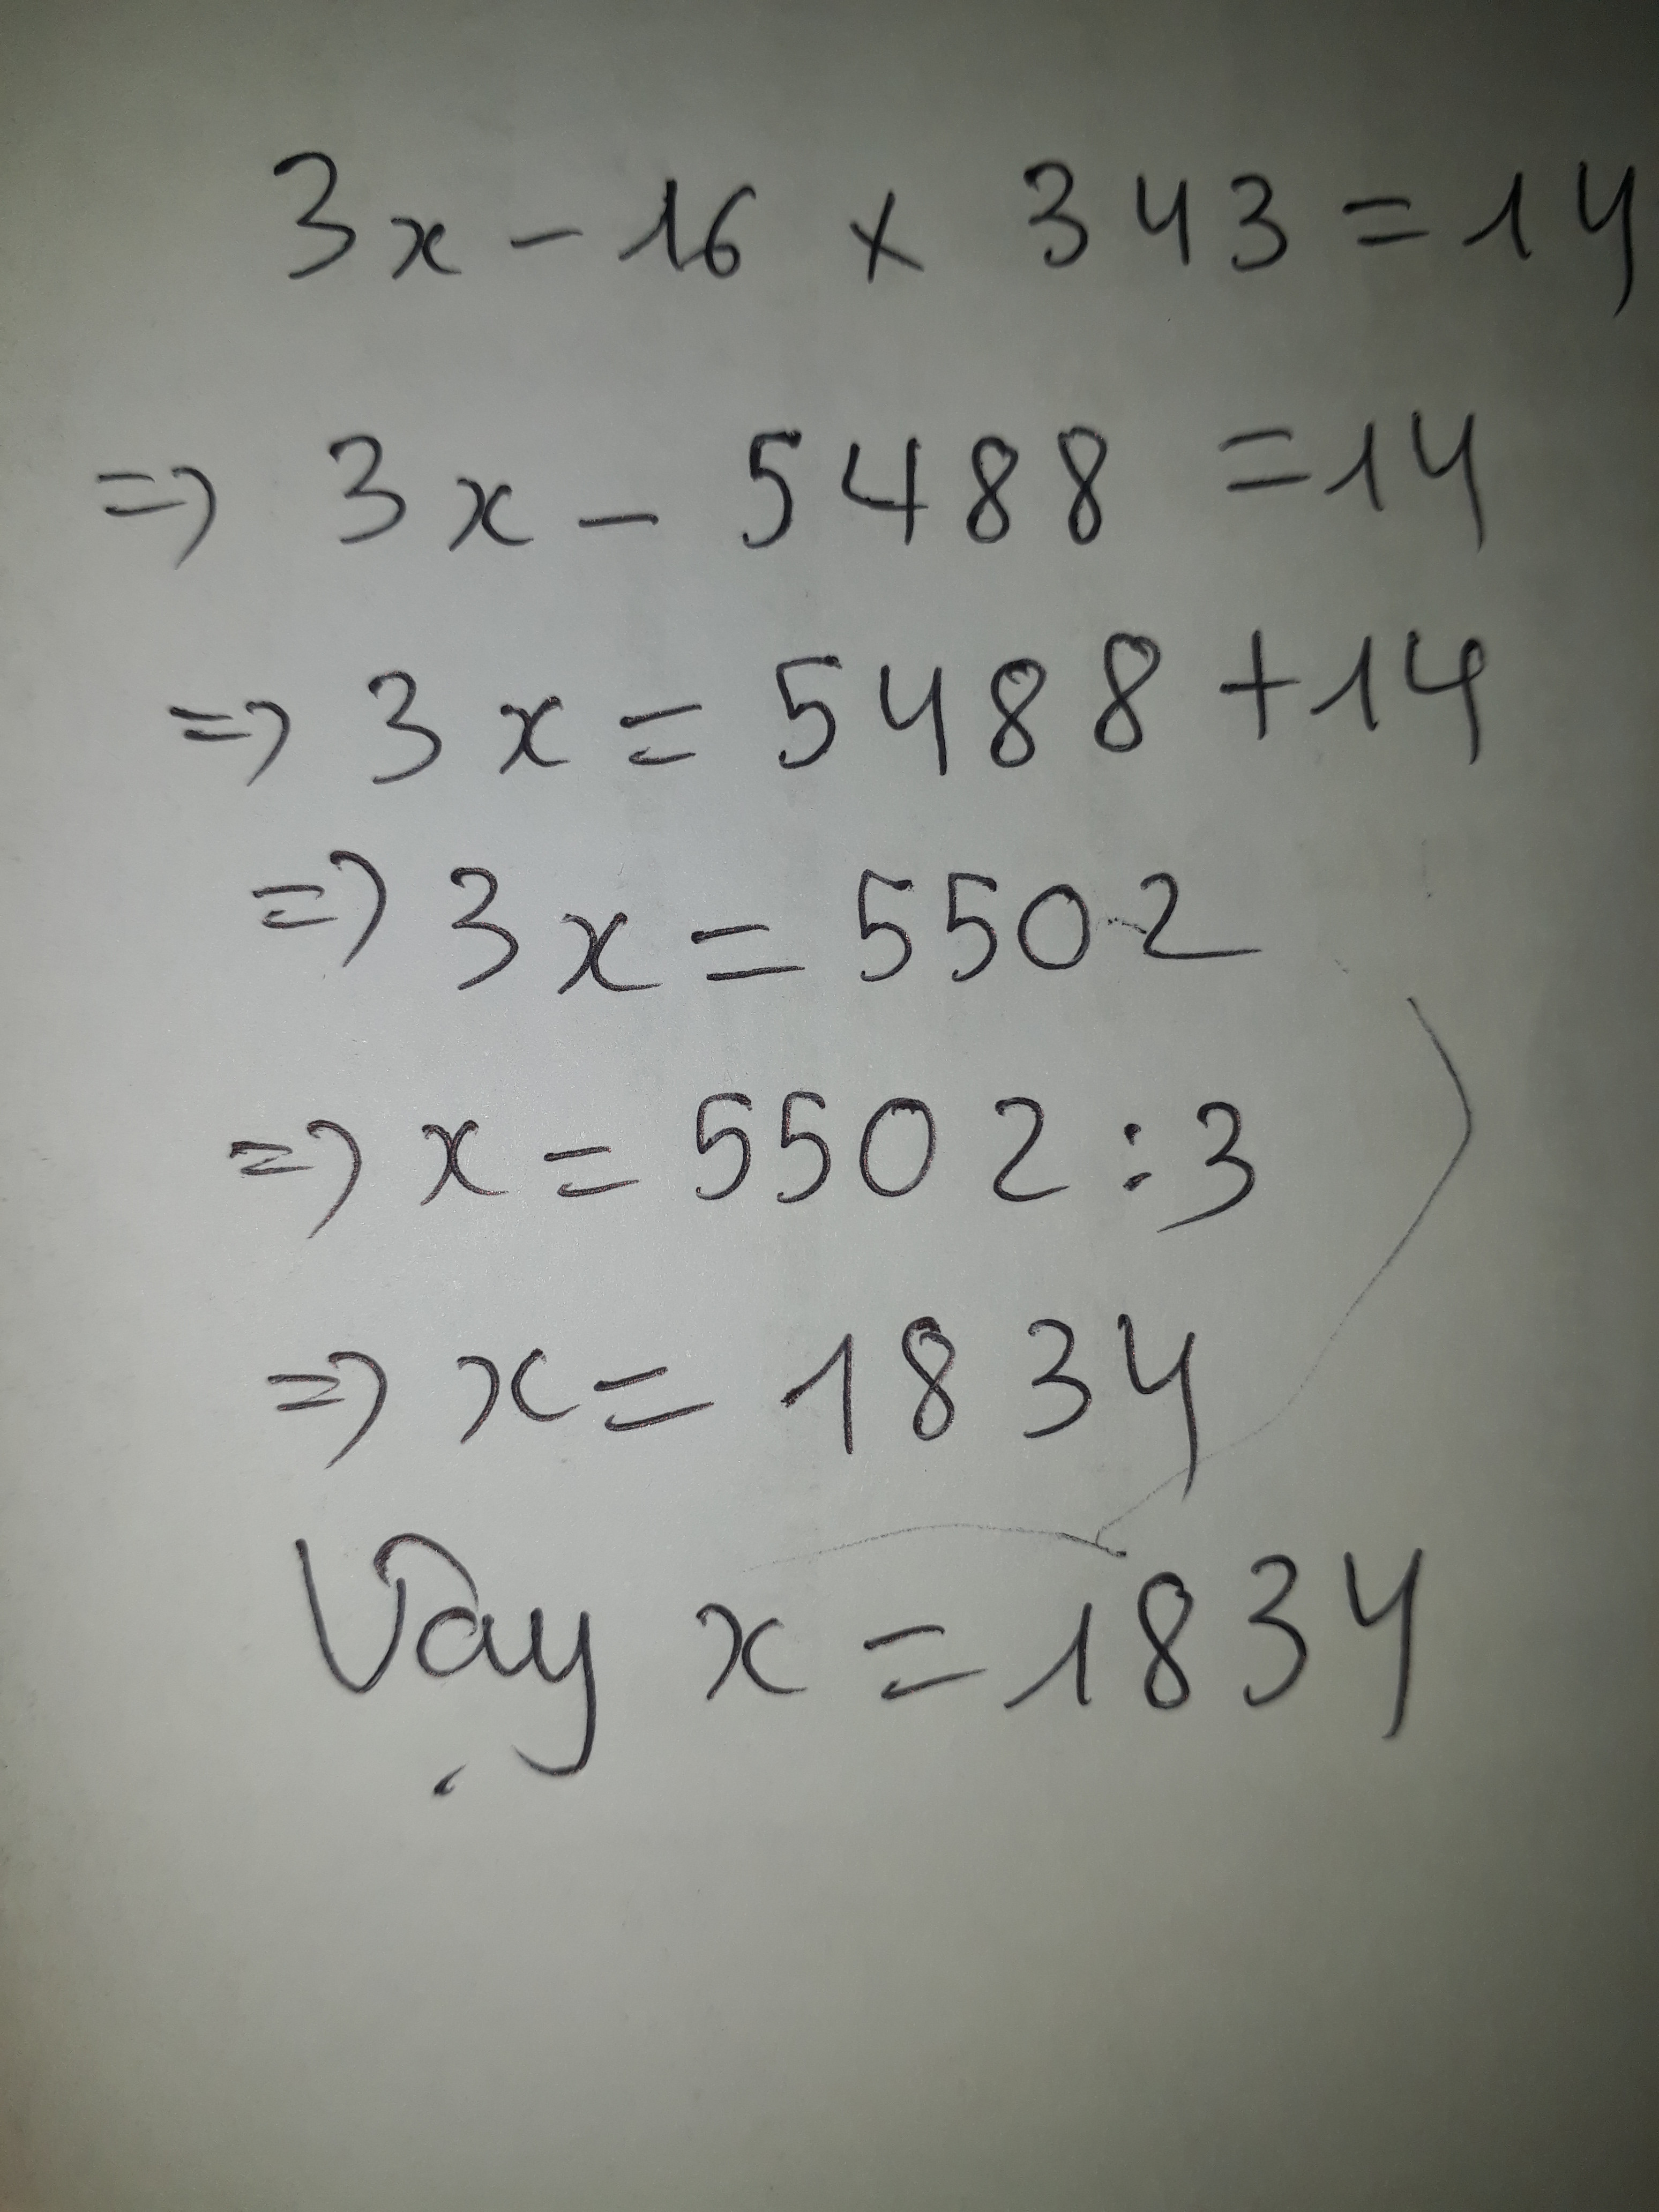 3x - 16 x 343 = 14
=> 3x - 5488 = 14
=> 3x = 5488 + 14
=> 3x = 5502
=> x = 5502 : 3
=> x = 1834
Vậy x = 1834